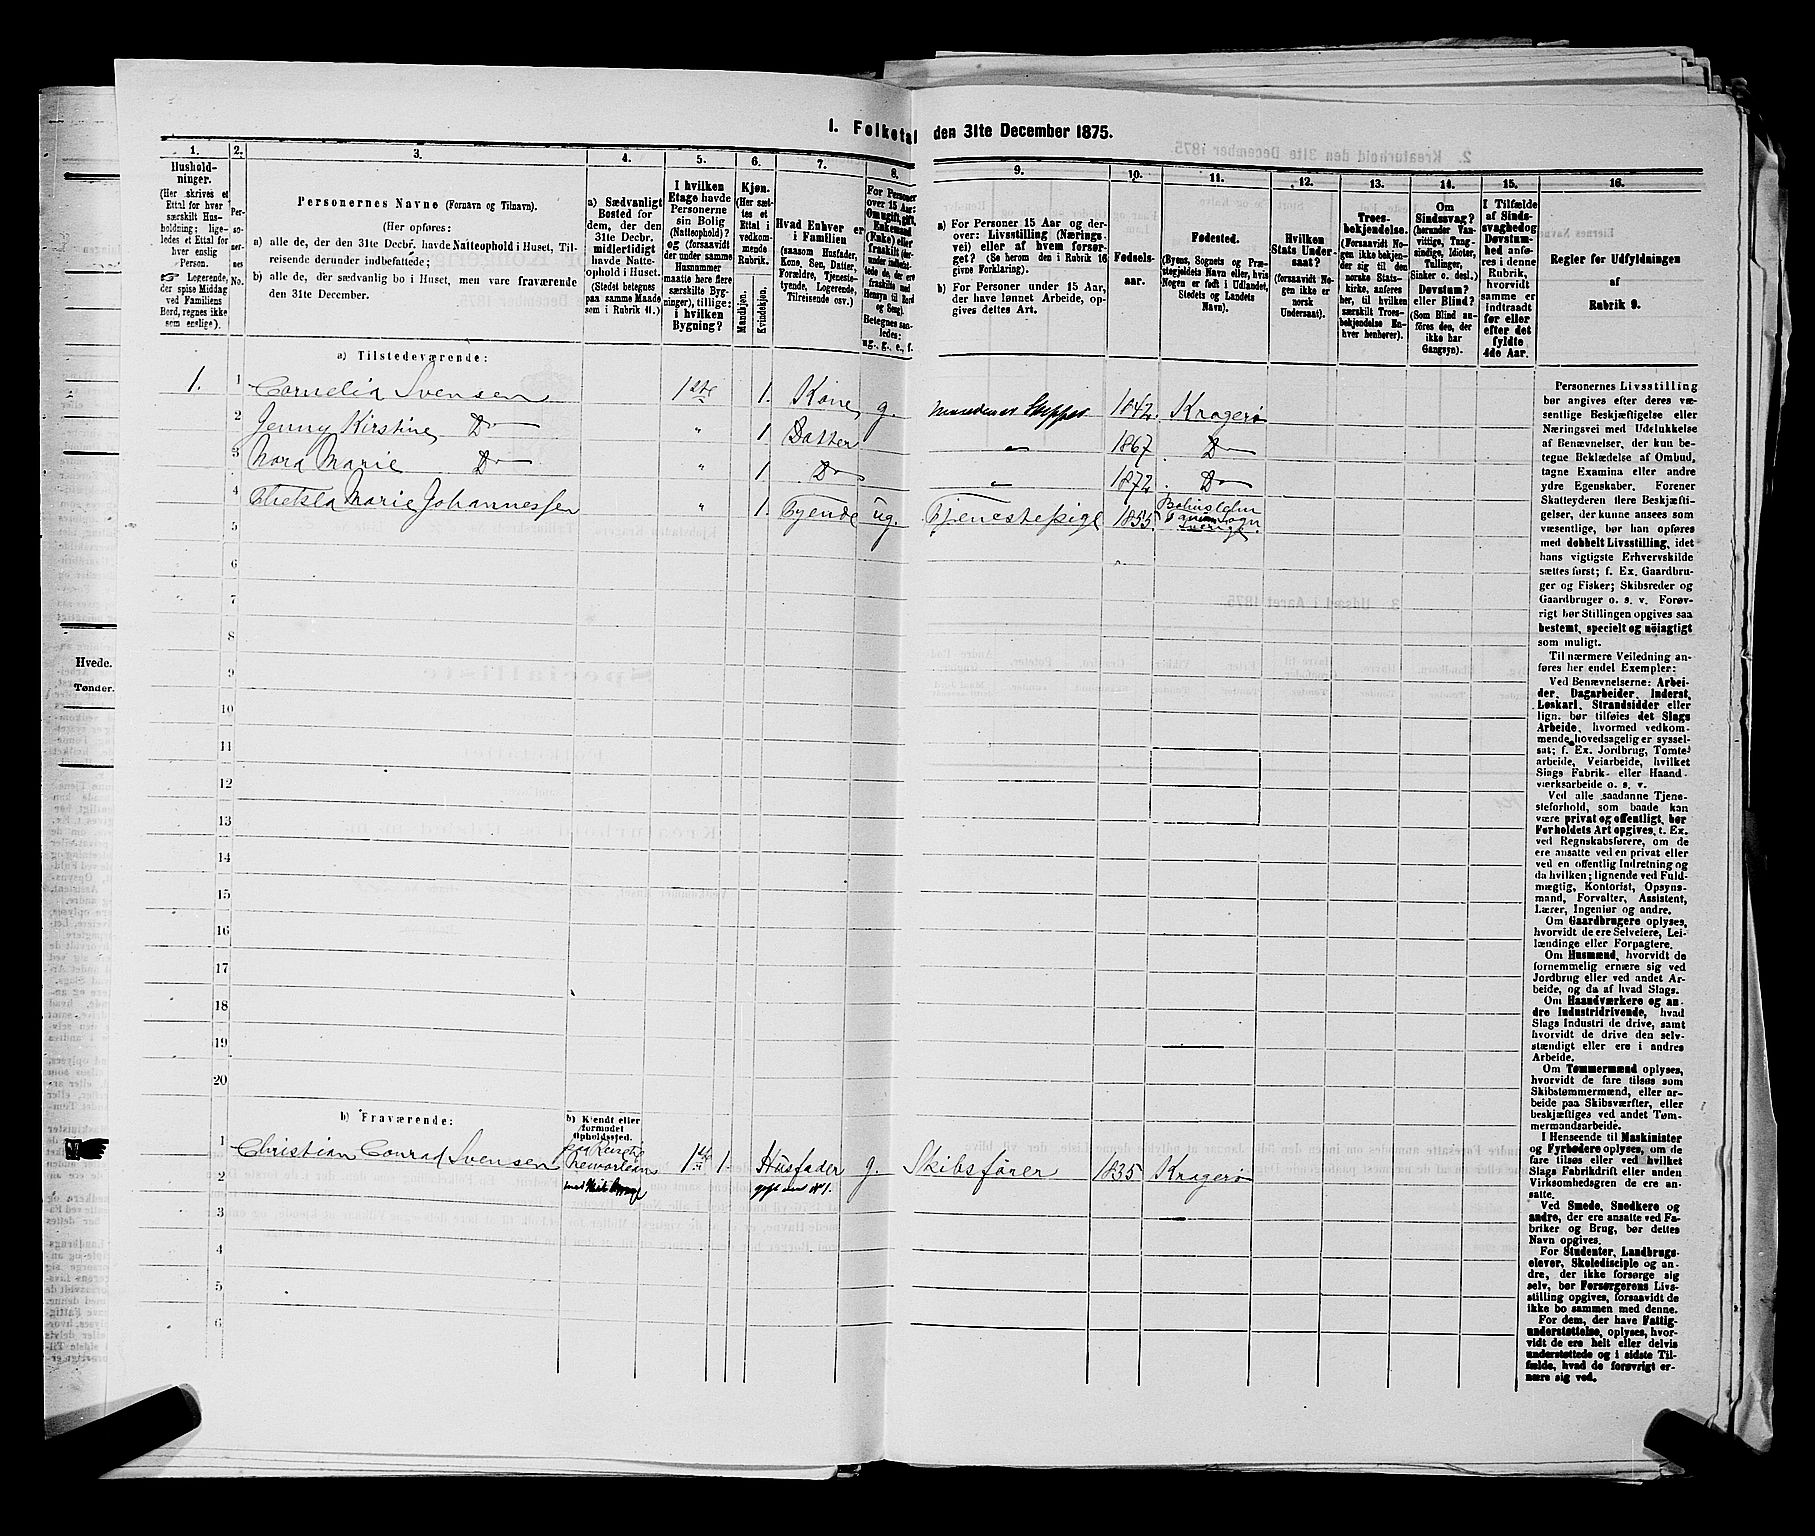 1. Folketal den 31te December 1875.
1. 2. 3. 4. 5. 6. 7. 8. 9. 10. 11. 12. 13. 14. 15. 16.
Hushold-
ninger.
(Her skrives et
Ettal for hver
særskilt Hus-
holdning; lige-
ledes et Ettal for
hver enslig
Person.
☞ Logerende,
der spise Middag
ved Familiens
Bord, regnes ikke
som enslige).
Per-
so-
ner-
nes
No.
Personernes Navne (Fornavn og Tilnavn).
(Her opføres:
a) alle de, der den 31te Decbr. havde Natteophold i Huset, Til-
reisende derunder indbefattede;
b) alle de, der sædvanlig bo i Huset, men vare fraværende
den 31te December.
a) Sædvanligt
Bosted for
dem, der den
31te Decbr.
midlertidigt
havde Natte-
ophold i Huset.
(Stedet betegnes
paa samme Maade
som i Rubrik 11.)
I hvilken
Etage havde
Personerne
sin Bolig
(Natteophold)?
og (forsaavidt
der under samme
Husnummer
maatte høre flere
særskilte Byg-
ninger), tillige:
i hvilken
Bygning?
Kjøn.
(Her sæt-
tes et
Ettal i
vedkom-
mende
Rubrik.
Mandkjøn.
Kvindekjøn.
Hvad Enhver er
i Familien
(saasom Husfader,
Kone, Søn, Datter,
Forældre, Tjeneste-
tyende, Logerende,
Tilreisende osv.)
For Personer
over 15 Aar:
Om ugift, gift,
Enkemand
(Enke) eller
fraskilt
Betegnes saa-
ledes:
ug., g., e., f.
a) For Personer 15 Aar og der-
over: Livsstilling (Nærings-
vei) eller af hvem forsør-
get? (Se herom den i Rubrik 16
givne Forklaring).
b) For Personer under 15 Aar,
der have lønnet Arbeide, op-
gives dettes Art.
Fødsels-
aar.
Fødested.
(Byens, Sognets og Præ-
stegjeldets Navn eller, hvis
Nogen er født i Udlandet,
Stedets og Landets
Navn).
Hvilken
Stats Under-
saat?
(forsaavidt No-
gen ikke er
norsk
Undersaat).
Troes-
bekjendelse.
(Forsaavidt No-
gen ikke bekjen-
der sig til den
norske Stats-
kirke, anføres
her, til hvilken
særskilt Troes-
bekjendelse En-
hver henhører).
Om
Sindssvag?
(herunder Van-
vittige, Tung-
sindige, Idioter,
Tullinger,
Sinker o. desl.)
Døvstum?
eller Blind?
(Som Blind an-
føres den, der
ikke har
Gangsyn).
I Tilfælde
af Sinds-
svaghed og
Døvstum-
hed anfø-
res i denne
Rubrik,
hvorvidt
samme er
indtraadt
før eller
efter det
fyldte
4de Aar.
Regler for Udfyldningen
af
Rubrik 9.
a) Tilstedeværende:
1. 1 Cornelia Svensen 1ste 1. Kone g. 1842. Kragerø
2 Jenny Kirstine Do " 1 Datter " 1867. Do
3 Nora Marie Do " 1 Do " 1872. Do
4 Thekla Marie Johannessen " 1. Tyende ug. Tjenestepige 1855. Bohuslehn
Sverige
5
6
7
8
9
10
11
12
13
14
15
16
17
18
19
20
b) Fraværende:
b) Kjendt eller
formodet
Opholdssted.
1 Christian Conrad Svensen paa Reise til 1ste 1. Husfader g. Skibsfører 1835 Kragerø
Neworleans
gift med No 1.
2
3
4
5
6
Personernes Livsstilling
bør angives efter deres væ-
sentlige Beskjæftigelse eller
Næringsvei med Udelukkelse
af Benævnelser, der kun be-
tegne Beklædelse af Ombud,
tagne Examina eller andre
ydre Egenskaber. Forener
Skatteyderen flere Beskjæfti-
gelser, der kunne ansees som
væsentlige, bør han opføres
med dobbelt Livsstilling, idet
hans vigtigste Erhvervskilde
sættes først; f. Ex. Gaardbru-
ger og Fisker; Skibsreder og
Gaardbruger o. s. v. Forøv-
rigt bør Stillingen opgives saa
bestemt, specielt og nöiagtigt
som muligt.
Til nærmere Veiledning an-
føres her endel Exempler:
Ved Benævnelserne: Arbei-
der, Dagarbeider, Inderst,
Løskarl, Strandsidder eller
lign. bør tilføies det Slags
Arbeide, hvormed vedkom-
mende hovedsagelig er syssel-
sat; f. Ex. Jordbrug, Tomte-
arbeide, Veiarbeide, hvilket
Slags Fabrik- eller Haand-
værksarbeide o. s. v.
Ved alle saadanne Tjene-
steforhold, som baade kan
være privat og offentligt, bør
Forholdets Art opgives, t. Ex.
ved Regnskabsførere, om de
ere ansatte ved en privat eller
ved en offentlig Indretning og
da hvilken; lignende ved Fuld-
mægtig, Kontorist, Opsyns-
mand, Forvalter, Assistent,
Lærer, Ingeniør og andre.
Om Gaardbrugere oplyses,
hvorvidt de ere Selveiere, Lei-
lændinge eller Forpagtere.
Om Husmænd, hvorvidt de
fornemmelig ernære sig ved
Jordbrug eller ved andet Ar-
beide, og da af hvad Slags.
Om Haandværkere og an-
dre Industridrivende, hvad
Slags Industri de drive, samt
hvorvidt de drive den selv-
stændigt eller ere i andres
Arbeide.
Om Tømmermænd oplyses,
hvorvidt de fare tilsøs som
Skibstømmermænd, eller ar-
beide paa Skibsværfter, eller
beskjæftiges ved andet Tøm-
mermandsarbeide.
I Henseende til Maskinister
og Fyrbødere oplyses, om de
fare tilsøs eller ved hvilket
Slags Fabrikdrift eller anden
Virksomhedsgren de ere an-
satte.
Ved Smede, Snedkere og
andre, der ere ansatte ved Fa-
briker og Brug, bør dettes
Navn opgives.
For Studenter, Landbrugs-
elever, Skoledisciple og an-
dre, der ikke forsørge sig
selv, bør Forsørgerens Livs-
stilling opgives, forsaavidt de
ikke bo sammen med denne.
For dem, der have Fattig-
understøttelse, oplyses, hvor-
vidt de ere helt eller delvis
understøttede og i sidste Til-
fælde, hvad de forøvrigt er-
nære sig ved.
Hvede.
Tønder.